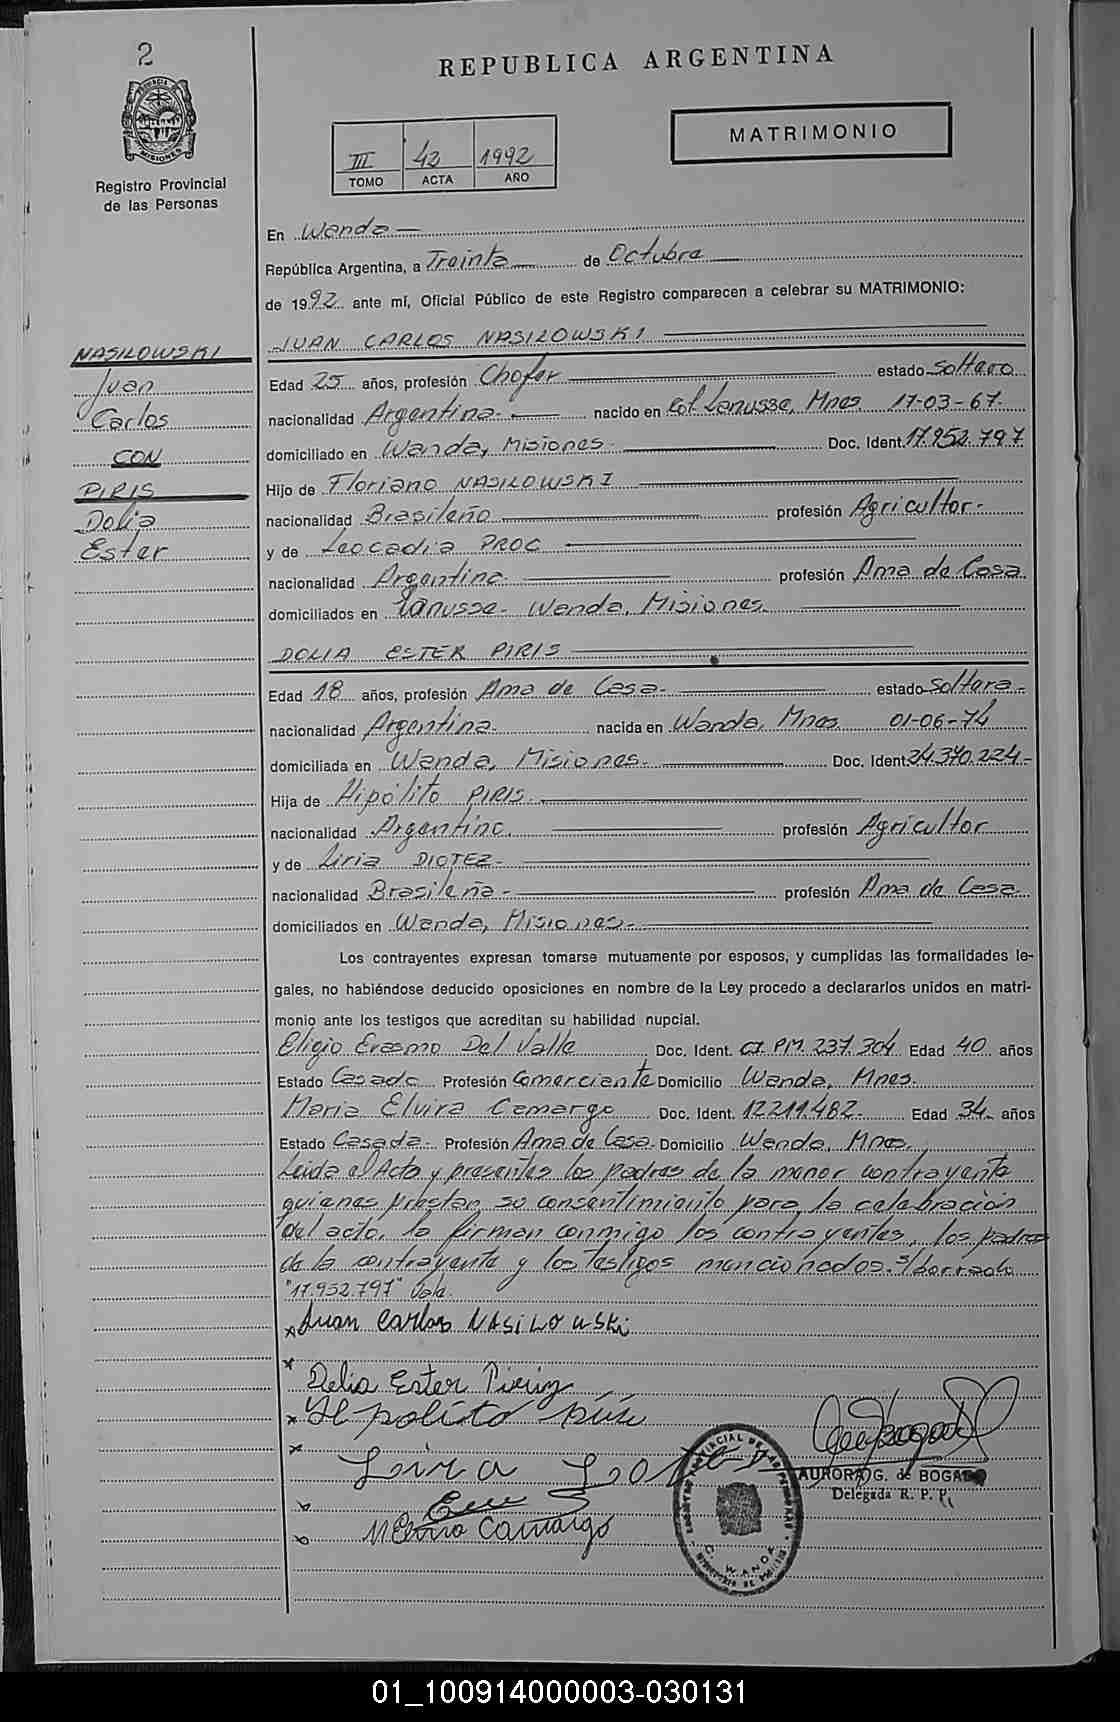 2
REPUBLICA ARGENTINA
PROVINCIA DE
MISIONES
Registro Provincial
de las Personas
III 42 1992
TOMO ACTA AÑO
MATRIMONIO
En Wanda
República Argentina, a Treinta de Octubre
de 1992 ante mí, Oficial Público de este Registro comparecen a celebrar su MATRIMONIO:
NASILOWSKI
Juan
Carlos
CON
PIRIS
Dolia
Ester
JUAN CARLOS NASILOWSKI
Edad 25 años, profesión Chofer estado Soltero
nacionalidad Argentina nacido en Col. Lanusse, Mnes. 17-03-67.
domiciliado en Wanda, Misiones. Doc. Ident. 17.952.797
Hijo de Floriano NASILOWSKI
nacionalidad Brasileño profesión Agricultor.
y de Leocadia PROC
nacionalidad Argentina. profesión Ama de Casa
domiciliados en Lanusse- Wanda, Misiones.
DOLIA ESTER PIRIS
Edad 18 años, profesión Ama de Casa. estado Soltera.
nacionalidad Argentina. nacida en Wanda, Mnes. 01-06-74
domiciliada en Wanda, Misiones. Doc. Ident. 24.370.224.-
Hija de Hipólito PIRIS.
nacionalidad Argentino. profesión Agricultor
y de Liria
nacionalidad Brasileña- profesión Ama de Casa
domiciliados en Wanda, Misiones.
Los contrayentes expresan tomarse mutuamente por esposos, y cumplidas las formalidades le-
gales, no habiéndose deducido oposiciones en nombre de la Ley procedo a declararlos unidos en matri-
monio ante los testigos que acreditan su habilidad nupcial.
Eligio Erasmo Del Valle Doc. Ident. CI. PM. 237.304 Edad 40 años
Estado Casado Profesión Comerciante Domicilio Wanda, Mnes.
Maria Elvira Camargo Doc. Ident. 12211.482. Edad 34 años
Estado Casada. Profesión Ama de Casa. Domicilio Wanda, Mnes.
Leida el Acta y presentes los padres de la menor contrayente
quienes prestan su consentimiento para la celebración
del acto, la firman conmigo los contrayentes, los padres
de la contrayente y los testigos mencionados. s/borrado
"17.952.797" Vale.
x Juan Carlos NASILOWSKi
x
Delia Ester
x Hipolito
x
Lira
x
x M Elvira Camargo
AURORA G. de BOGADO
Delegada R. P. P.
WANDA
01_100914000003-030131